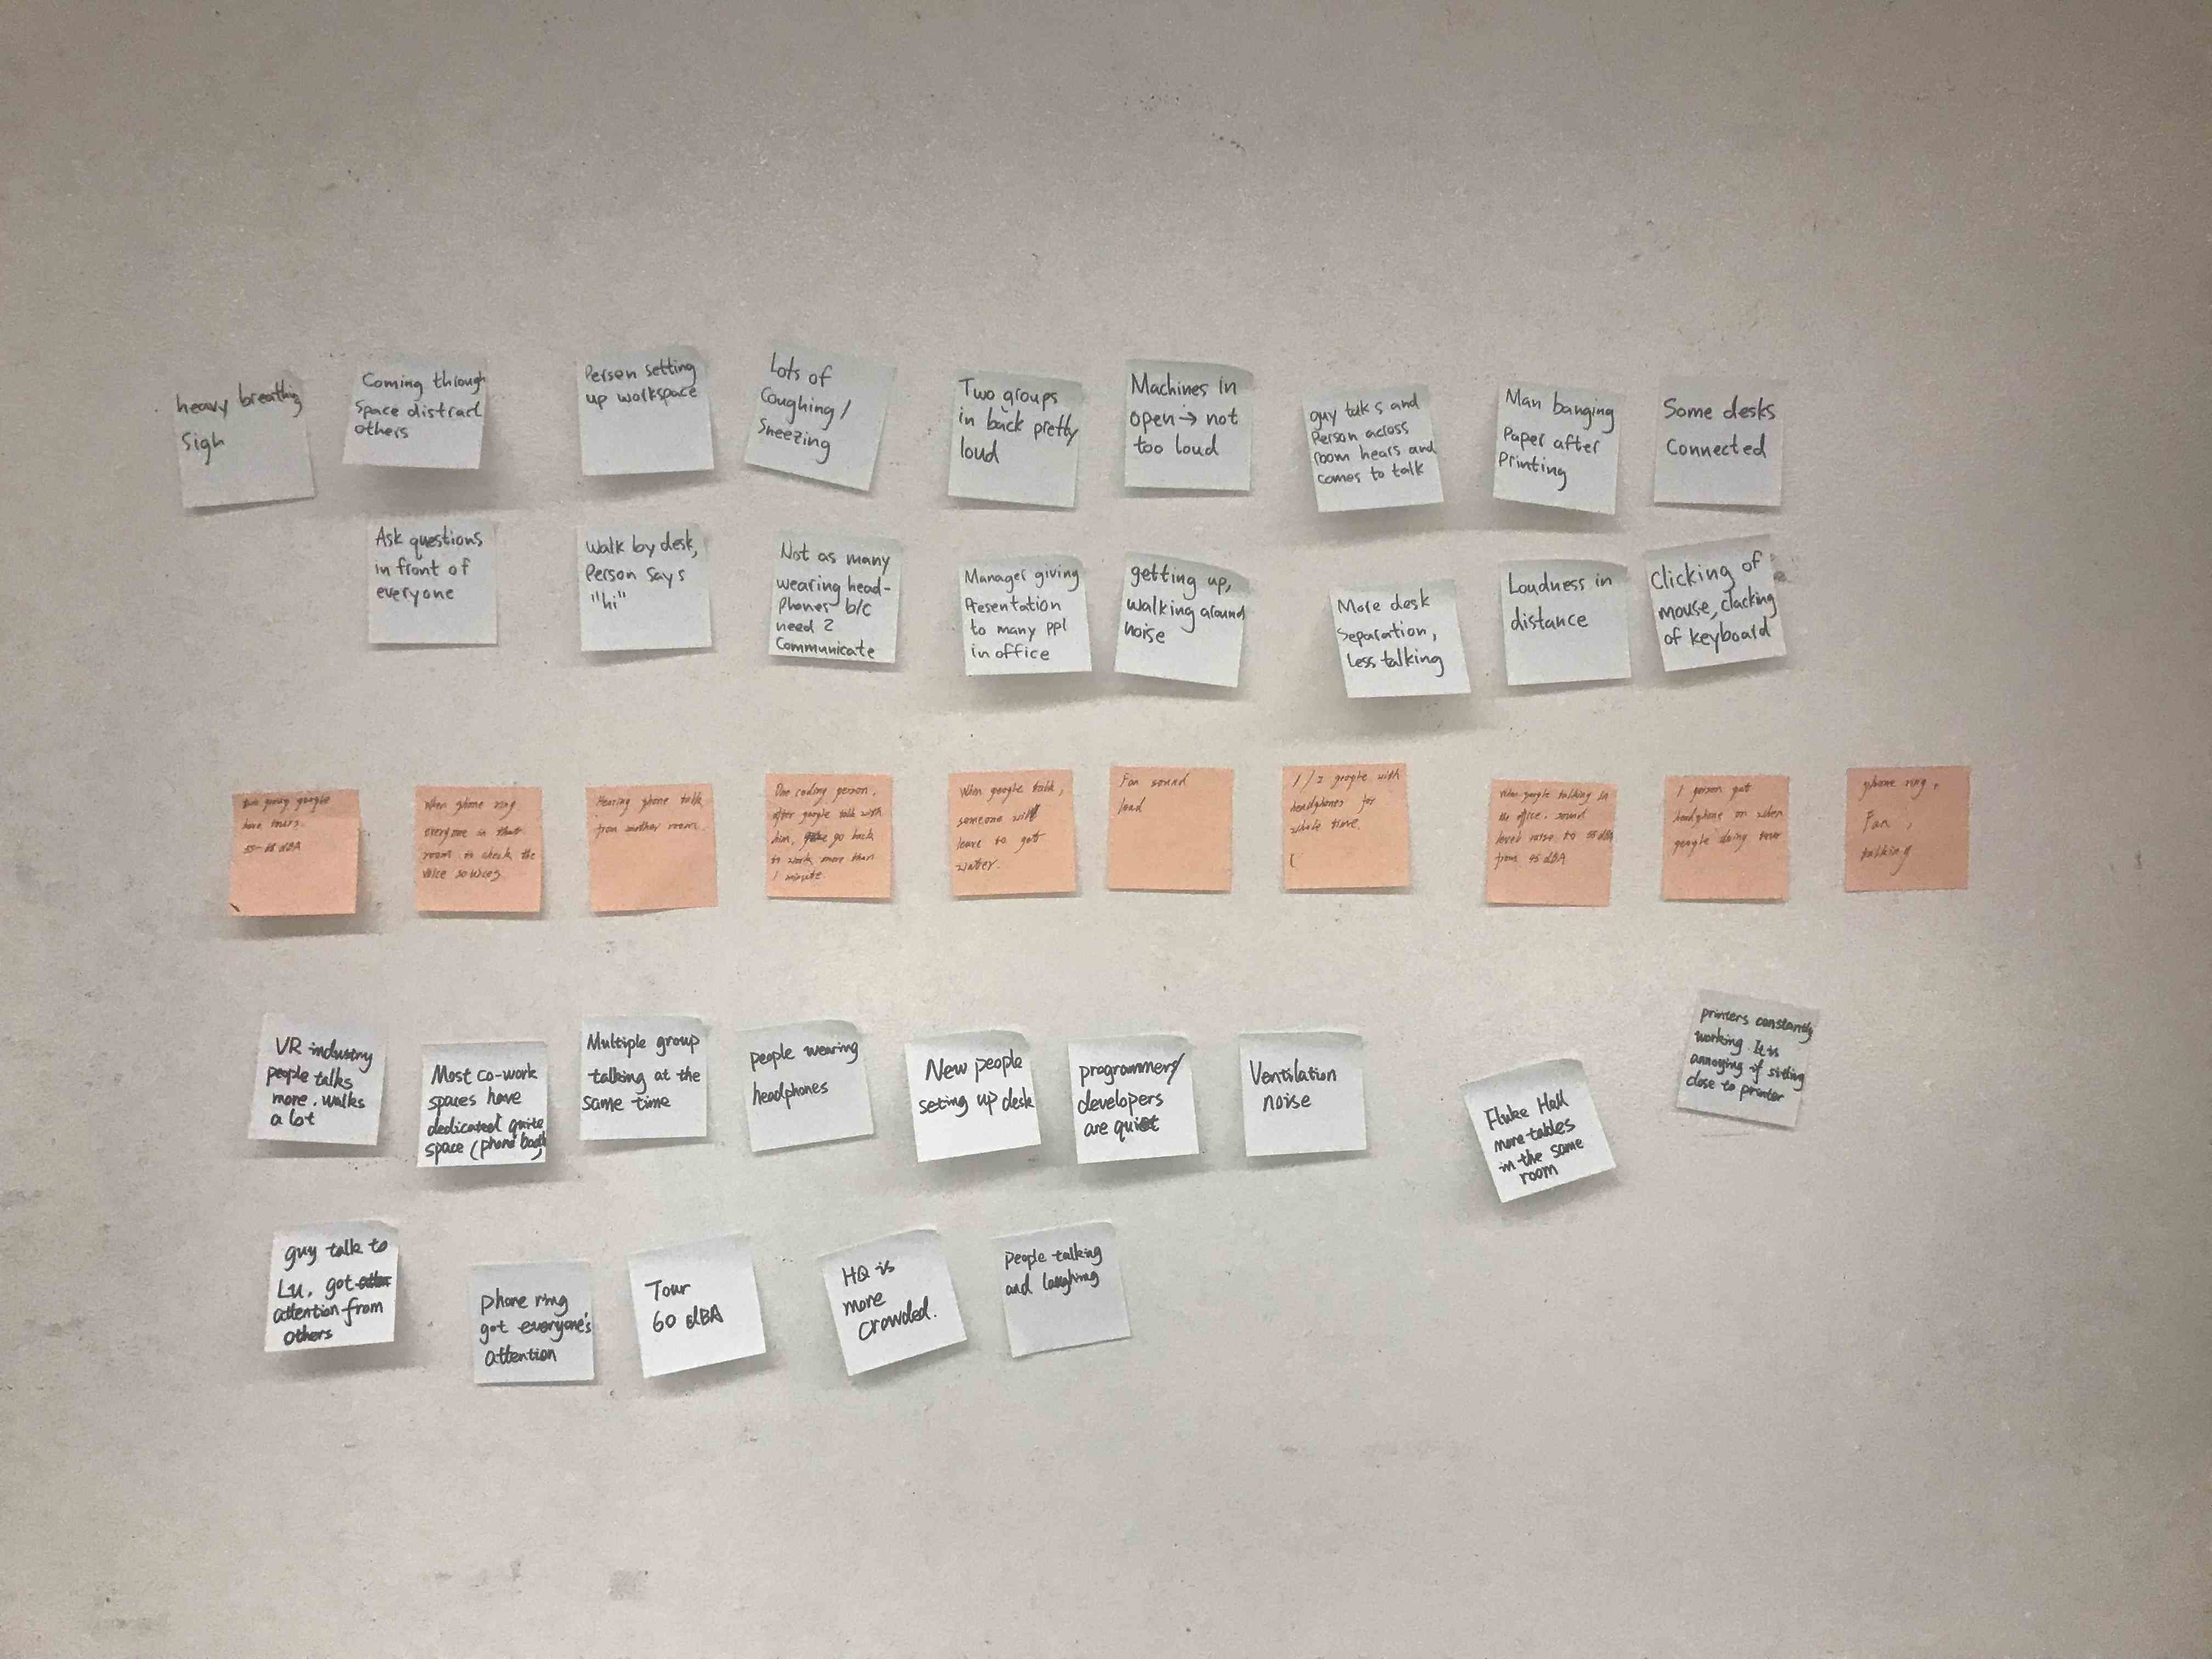 heavy breathing
sigh
Coming through
space distract
others
Person setting
up workspace
Lots of
Coughing/
Sneezing
Two groups
in back pretty
loud
Machines in
open → not
too loud
guy talks and
Person across
room hears and
comes to talk
Man banging
Paper after
Printing
Some desks
Connected
Ask questions
in front of
everyone
Walk by desk,
Person says
"hi"
Not as many
wearing head-
phones b/c
need 2
Communicate
Manager giving
Presentation
to many ppl
in office
getting up,
walking around
noise
More desk
Separation,
Less talking
Loudness in
distance
Clicking of
mouse, clacking
of keyboard
people
have tours.
dBA
When phone ring
everyone in that
room check the
voice sources
Hearing phone talk
from another room.
One coding person,
after people talk with
him, go back
to work more than
1 minute.
When people talk,
someone will
leave to get
water.
Fan sound
loud
1/2 people with
headphones for
whole time.
When people talking in
the office, sound
level raise to 55 dBA
from 45 dBA
1 person put
headphone on when
people doing tour
phone ring,
Fan,
talking
VR industry
people talks
more. walks
a lot
Most co-work
spaces have
dedicated quite
space (phone booth
Multiple group
talking at the
same time
people wearing
headphones
New people
seting up desk
programmers/
developers
are quiet
Ventilation
noise
Fluke Hall
more tables
in the same
room
printers constantly
working. It is
annoying if sitting
close to printer
guy talk to
Lu, got
attention from
others
phone ring
got everyone's
attention
Tour
60 dBA
HQ is
more
crowded.
People talking
and laughing